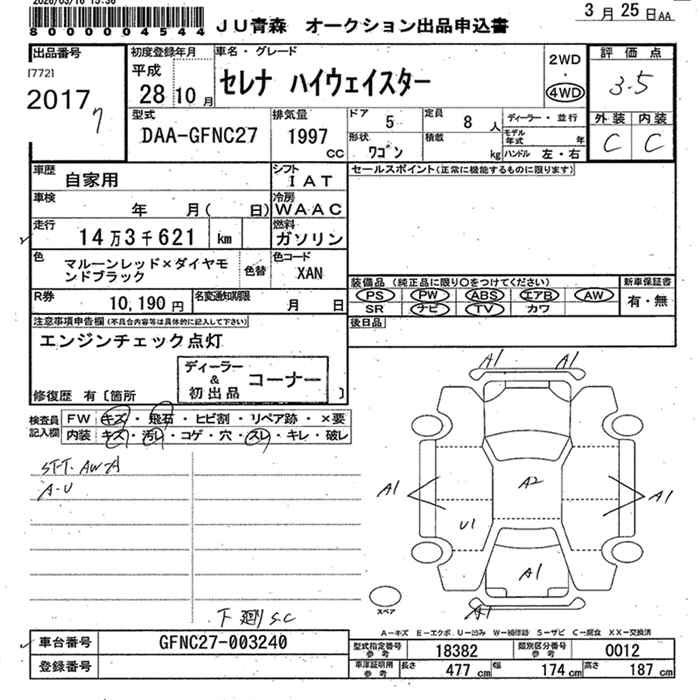 2026/03/16 15:36
3月25日AA
8000004544
JU青森 オークション出品申込書
出品番号
[772]
2017
7
初度登録年月
平成
28年10月
車名・グレード
セレナ ハイウェイスター
2WD
・
4WD
評価点
3.5
外装 内装
C C
型式
DAA-GFNC27
排気量
1997
cc
ドア
5
定員
8人
形状
ワゴン
積載
kg
ディーラー・並行
モデル年式
年
ハンドル 左・右
車歴
自家用
シフト
IAT
セールスポイント(正常に機能するものに限ります)
車検
年 月( 日)
冷房
WAAC
走行
14万3千621 km
燃料
ガソリン
色
マルーンレッド×ダイヤモ
ンドブラック
色替
色コード
XAN
装備品 (純正品に限り〇をつけてください)
PS PW ABS エアB AW
SR ナビ TV カワ
新車保証書
有・無
R券
10,190円
名変通知期限
月 日
後日品
注意事項申告欄(不具合内容等は具体的に記入して下さい)
エンジンチェック点灯
ディーラー
&
初出品
コーナー
修復歴 有〔箇所 〕
検査員
記入欄
FW キズ・飛石・ヒビ割・リペア跡・×要
内装 キズ・汚レ・コゲ・穴・スレ・キレ・破レ
STT. AWガ
A-U
下廻りS.C
A1
A1
A1
A2
A1
U1
A1
A1
スペア
A―キズ E―エクボ U―凹み W―補修跡 S―サビ C―腐食 XX―交換済
車台番号
GFNC27-003240
登録番号
型式指定番号
参考
18382
類別区分番号
参考
0012
車庫証明用
参考
長さ
477cm
幅
174cm
高さ
187cm